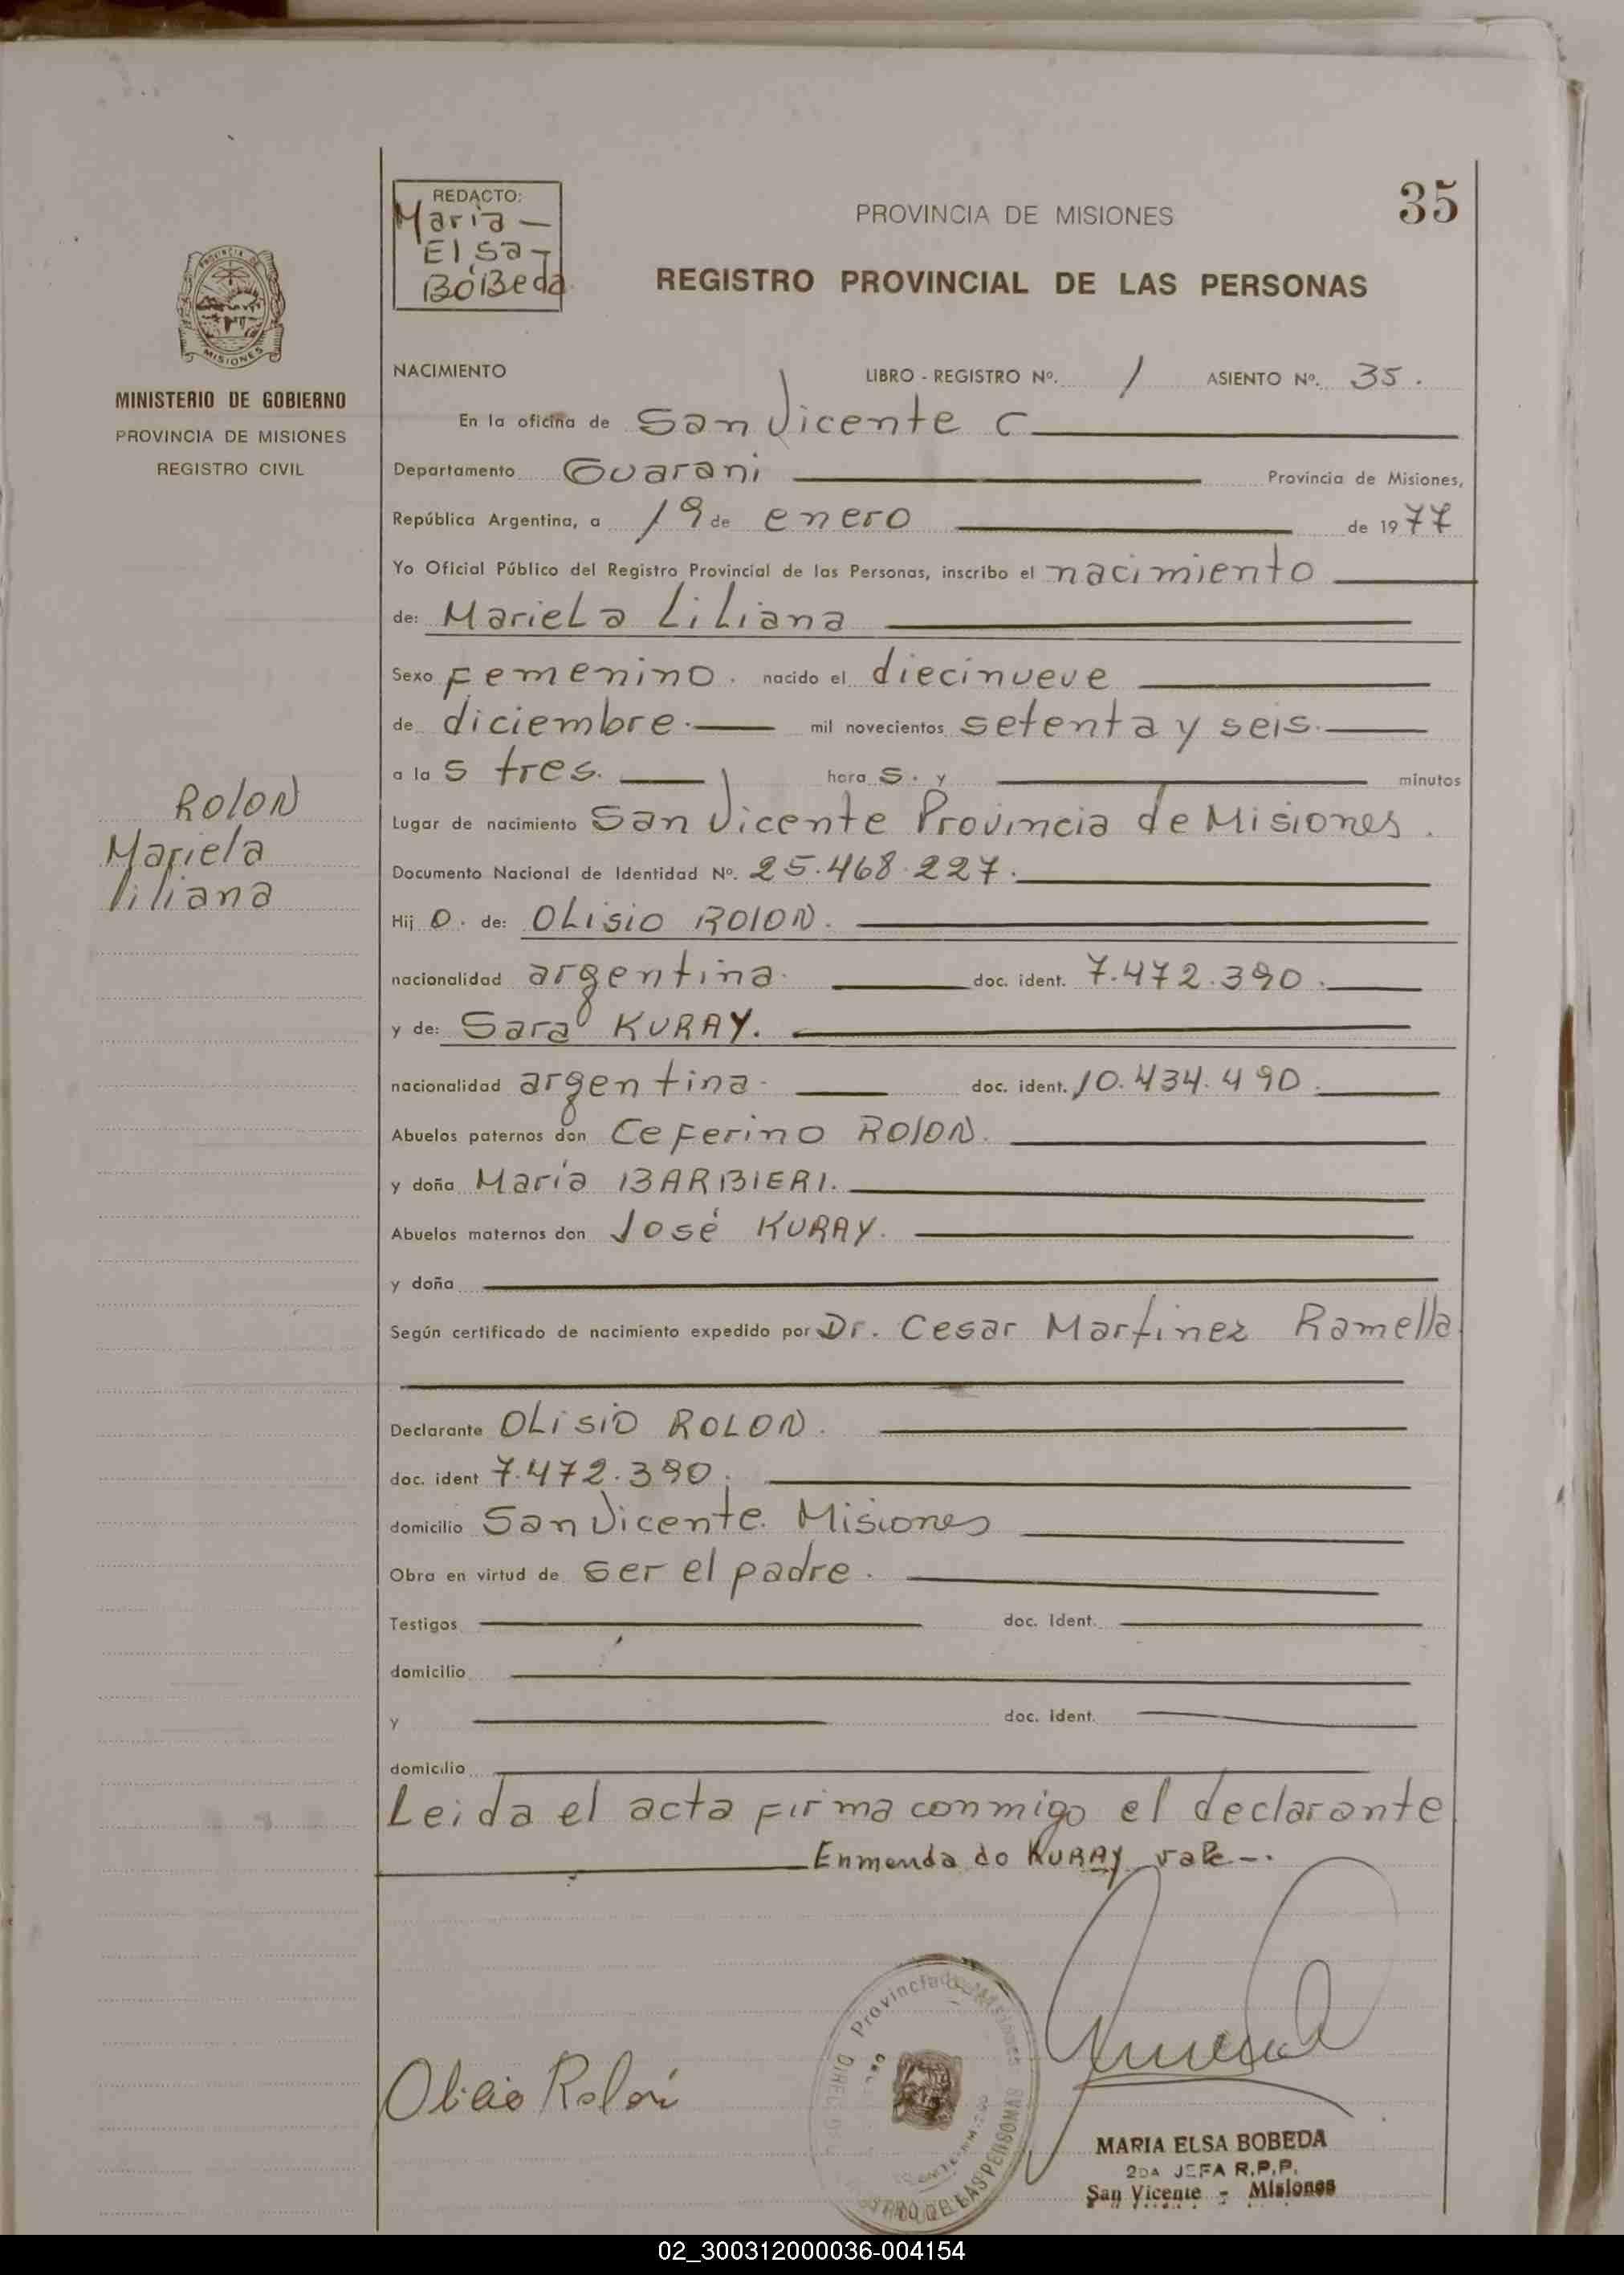 35
REDACTO:
Maria
Elsa
BoBeda
PROVINCIA DE MISIONES
REGISTRO PROVINCIAL DE LAS PERSONAS
MISIONES
MINISTERIO DE GOBIERNO
PROVINCIA DE MISIONES
REGISTRO CIVIL
NACIMIENTO LIBRO - REGISTRO Nº. 1 ASIENTO Nº. 35.
En la oficina de San Vicente C
Departamento Guarani Provincia de Misiones,
República Argentina, a 19 de enero de 1977
Yo Oficial Público del Registro Provincial de las Personas, inscribo el nacimiento
de: Mariela Liliana
Sexo Femenino. nacido el diecinueve
de diciembre. mil novecientos setenta y seis.
a las tres. horas. y minutos
ROLON
Mariela
liliana
Lugar de nacimiento San Vicente Provincia de Misiones.
Documento Nacional de Identidad Nº. 25.468.227.
Hij O. de: OLisio ROLON.
nacionalidad argentina. doc. ident. 7.472.390.
y de: Sara KURAY.
nacionalidad argentina. doc. ident. 10.434.490.
Abuelos paternos don CeFerino ROLON.
y doña María BARBIERI.
Abuelos maternos don José KURAY.
y doña
Según certificado de nacimiento expedido por Dr. Cesar Martinez Ramella.
Declarante OLisio ROLON.
doc. ident 7.472.390.
domicilio San Vicente. Misiones
Obra en virtud de ser el padre.
Testigos doc. ident.
domicilio
y doc. ident.
domicilio
Leida el acta firma conmigo el declarante
Enmendado KURAY vale-.
Provincia de Misiones
LAS PERSONAS
Olisio Rolon
MARIA ELSA BOBEDA
2DA JEFA R.P.P.
San Vicente - Misiones
02_300312000036-004154